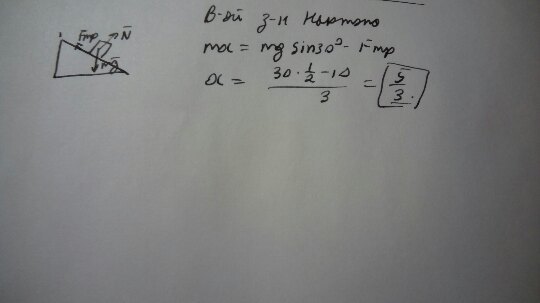 Fтр N̄
mg
В-ой з-н Ньютона
ma = mg sin30° - Fтр
a = (30 · 1/2 - 10) / 3 = 5/3